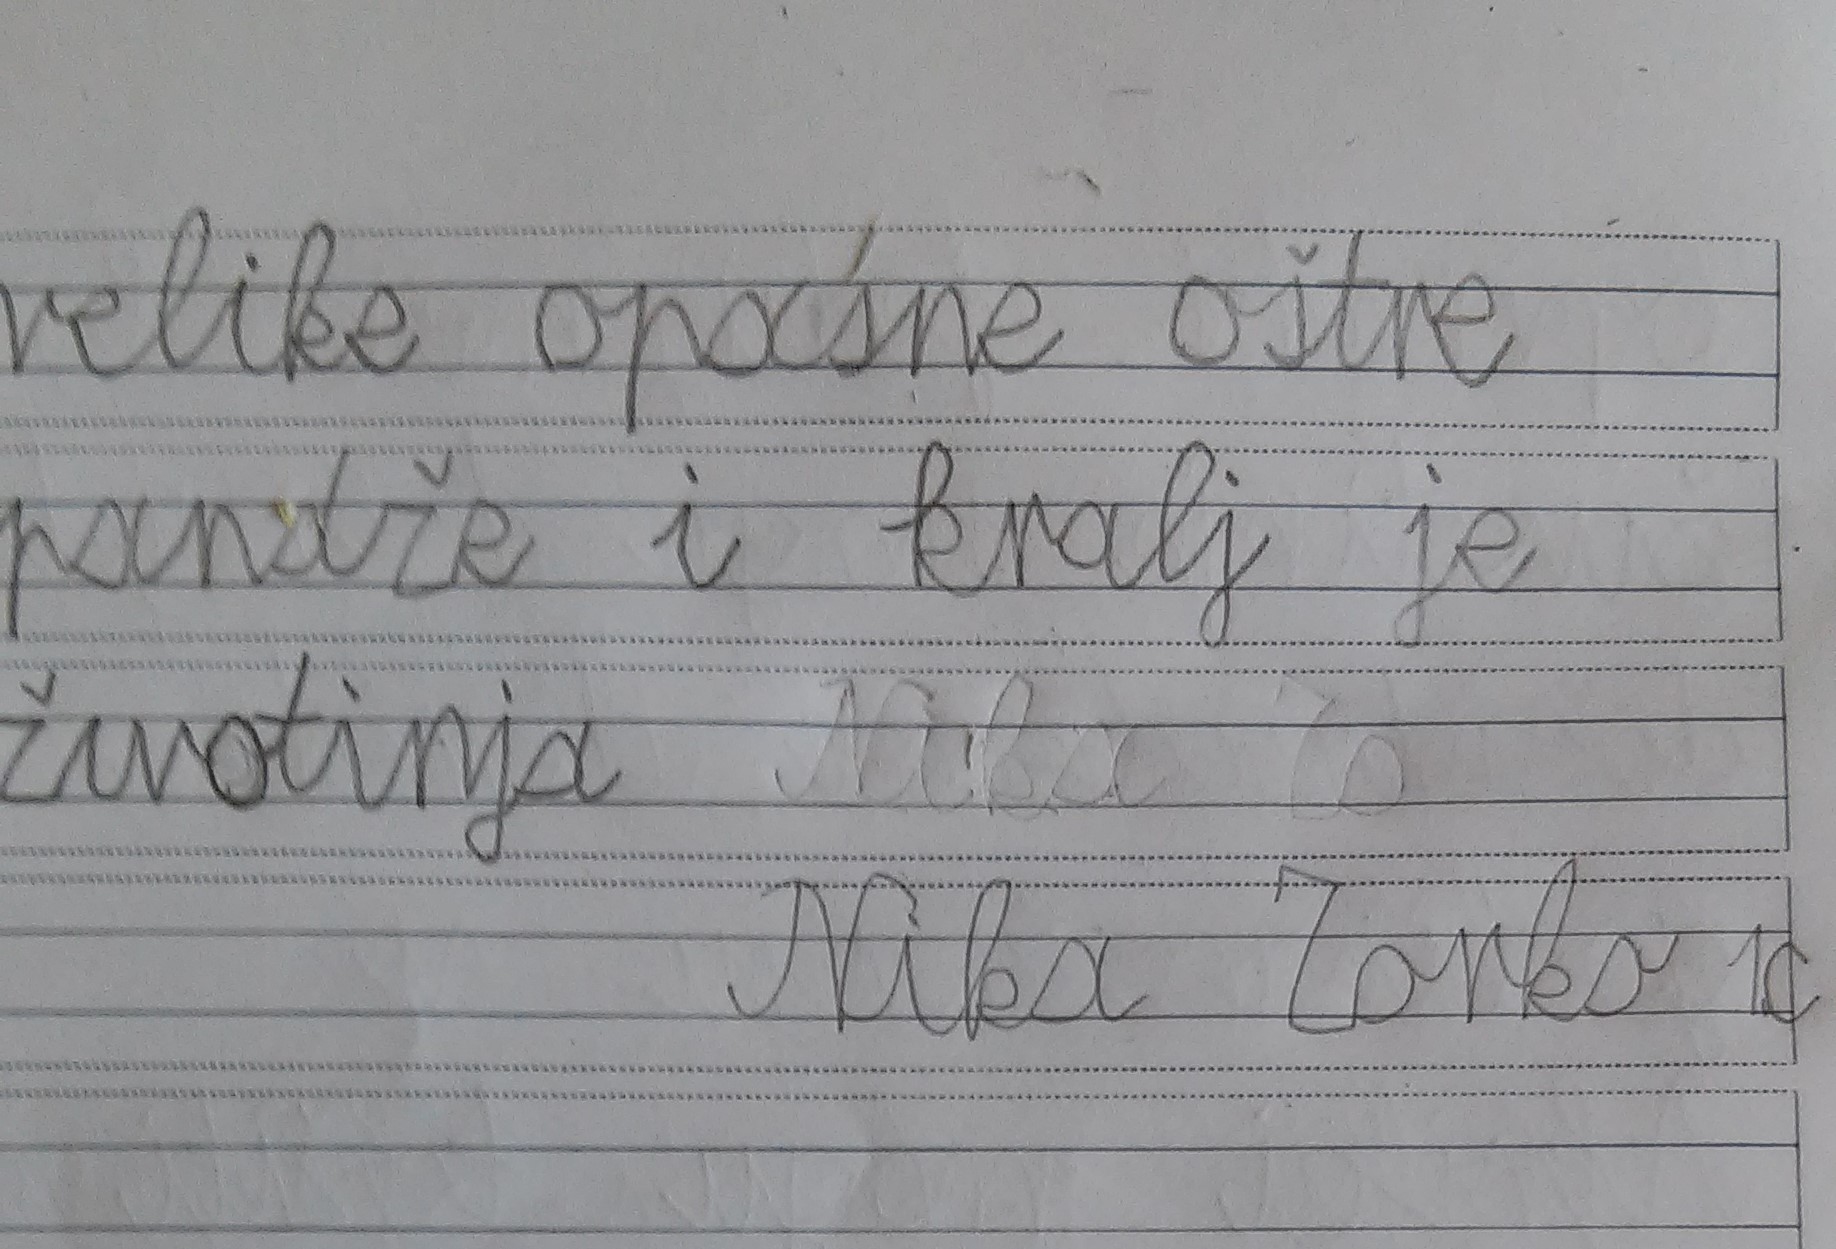 velike opasne oštre
pandže i kralj je
životinja Nika Zo
Nika Zorko 1c